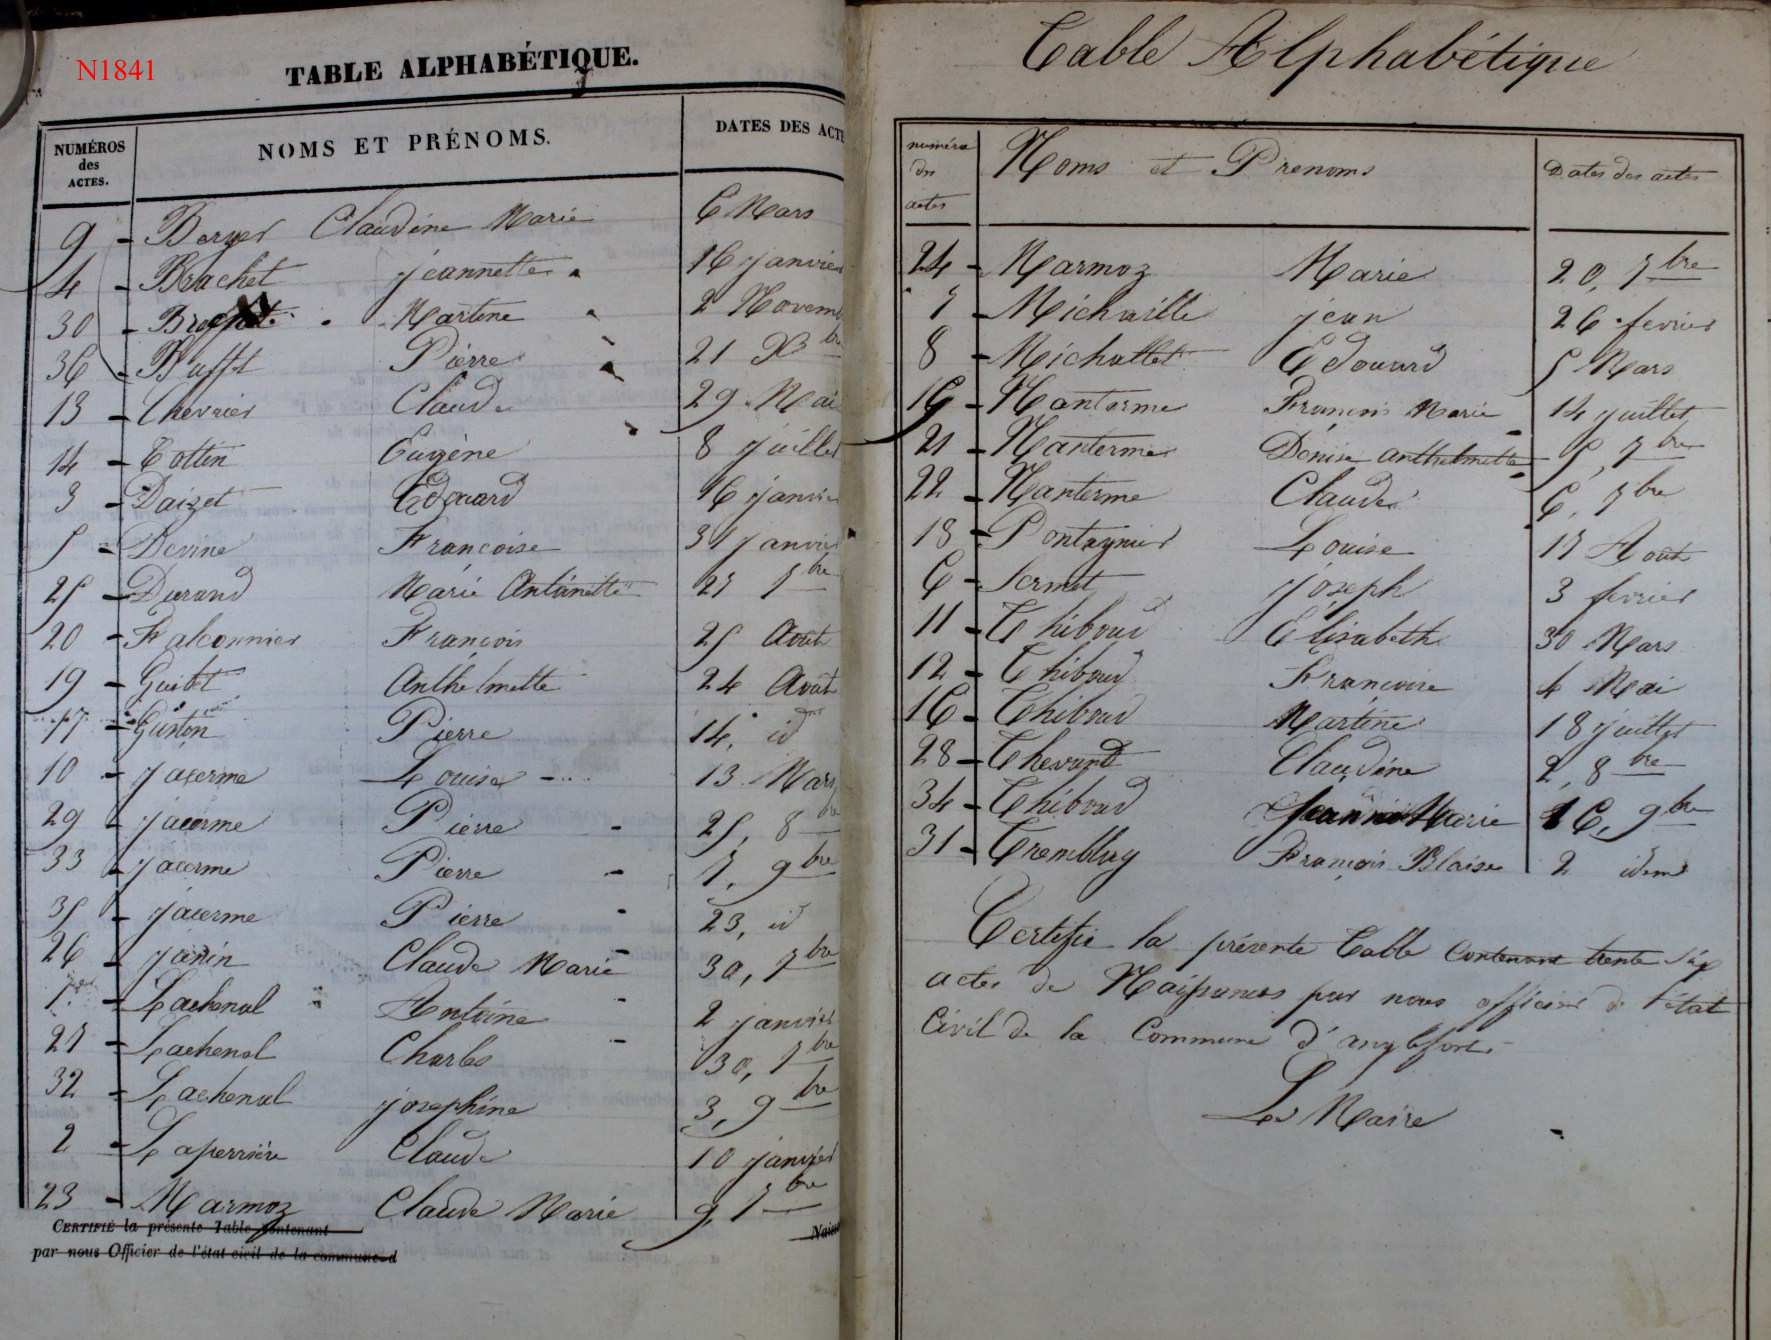 N1841
TABLE ALPHABÉTIQUE.
NUMÉROS des ACTES. NOMS ET PRÉNOMS. DATES DES ACTE
9 - Berger Claudine Marie 6 Mars
4 - Brachet jeannette 16 janvier
30 - Martine 2 Novemb
36 - Buffet Pierre 21 Xbre
13 - Chevrier Claude 29 Mai
14 - Cottin Eugène 8 juillet
3 - Daizet Edouard 16 janvie
5 - Devine Françoise 31 janvier
25 - Durand Marie Antoinette 27 7bre
20 - Falconnier François 25 Août
19 - Guibet Anthelmette 24 Août
17 - Guston Pierre 14, id
10 - jacerme Louise 13 Mars
29 - jacerme Pierre 25, 8bre
33 - jacerme Pierre 7, 9bre
35 - jacerme Pierre 23, id
26 - janin Claude Marie 30, 7bre
1 - Lachenal Antoine 2 janvier
27 - Lachenal Charles 30, 7bre
32 - Lachenal josephine 3, 9bre
2 - Laperrière Claude 10 janvier
23 - Marmoz Claude Marie 9 7bre
CERTIFIÉ la présente Table contenant Naiss
par nous Officier de l'état civil de la commune d
Table Alphabétique
numéro des actes Noms et Prenoms Dates des actes
24 - Marmoz Marie 20, 7bre
7 - Michaille jean 26 fevrier
8 - Michallet Edouard 5 Mars
15 - Nanterme François Marie 14 juillet
21 - Nanterme Denise Anthelmette 5, 7bre
22 - Nanterme Claude 6, 7bre
18 - Pontagnier Louise 17 Août
6 - Sermet joseph 3 fevrier
11 - Thiboud Elisabeth 30 Mars
12 - Thiboud Françoise 4 Mai
16 - Thiboud Martine 18 juillet
28 - Thevand Claudine 2, 8bre
34 - Thiboud jeanne Marie 16, 9bre
31 - Tremblay François Blaise 2 idem
Certifie la présente Table Contenant trente six
actes de Naissances par nous officier de l'état
Civil de la Commune d'anglefort
Le Maire